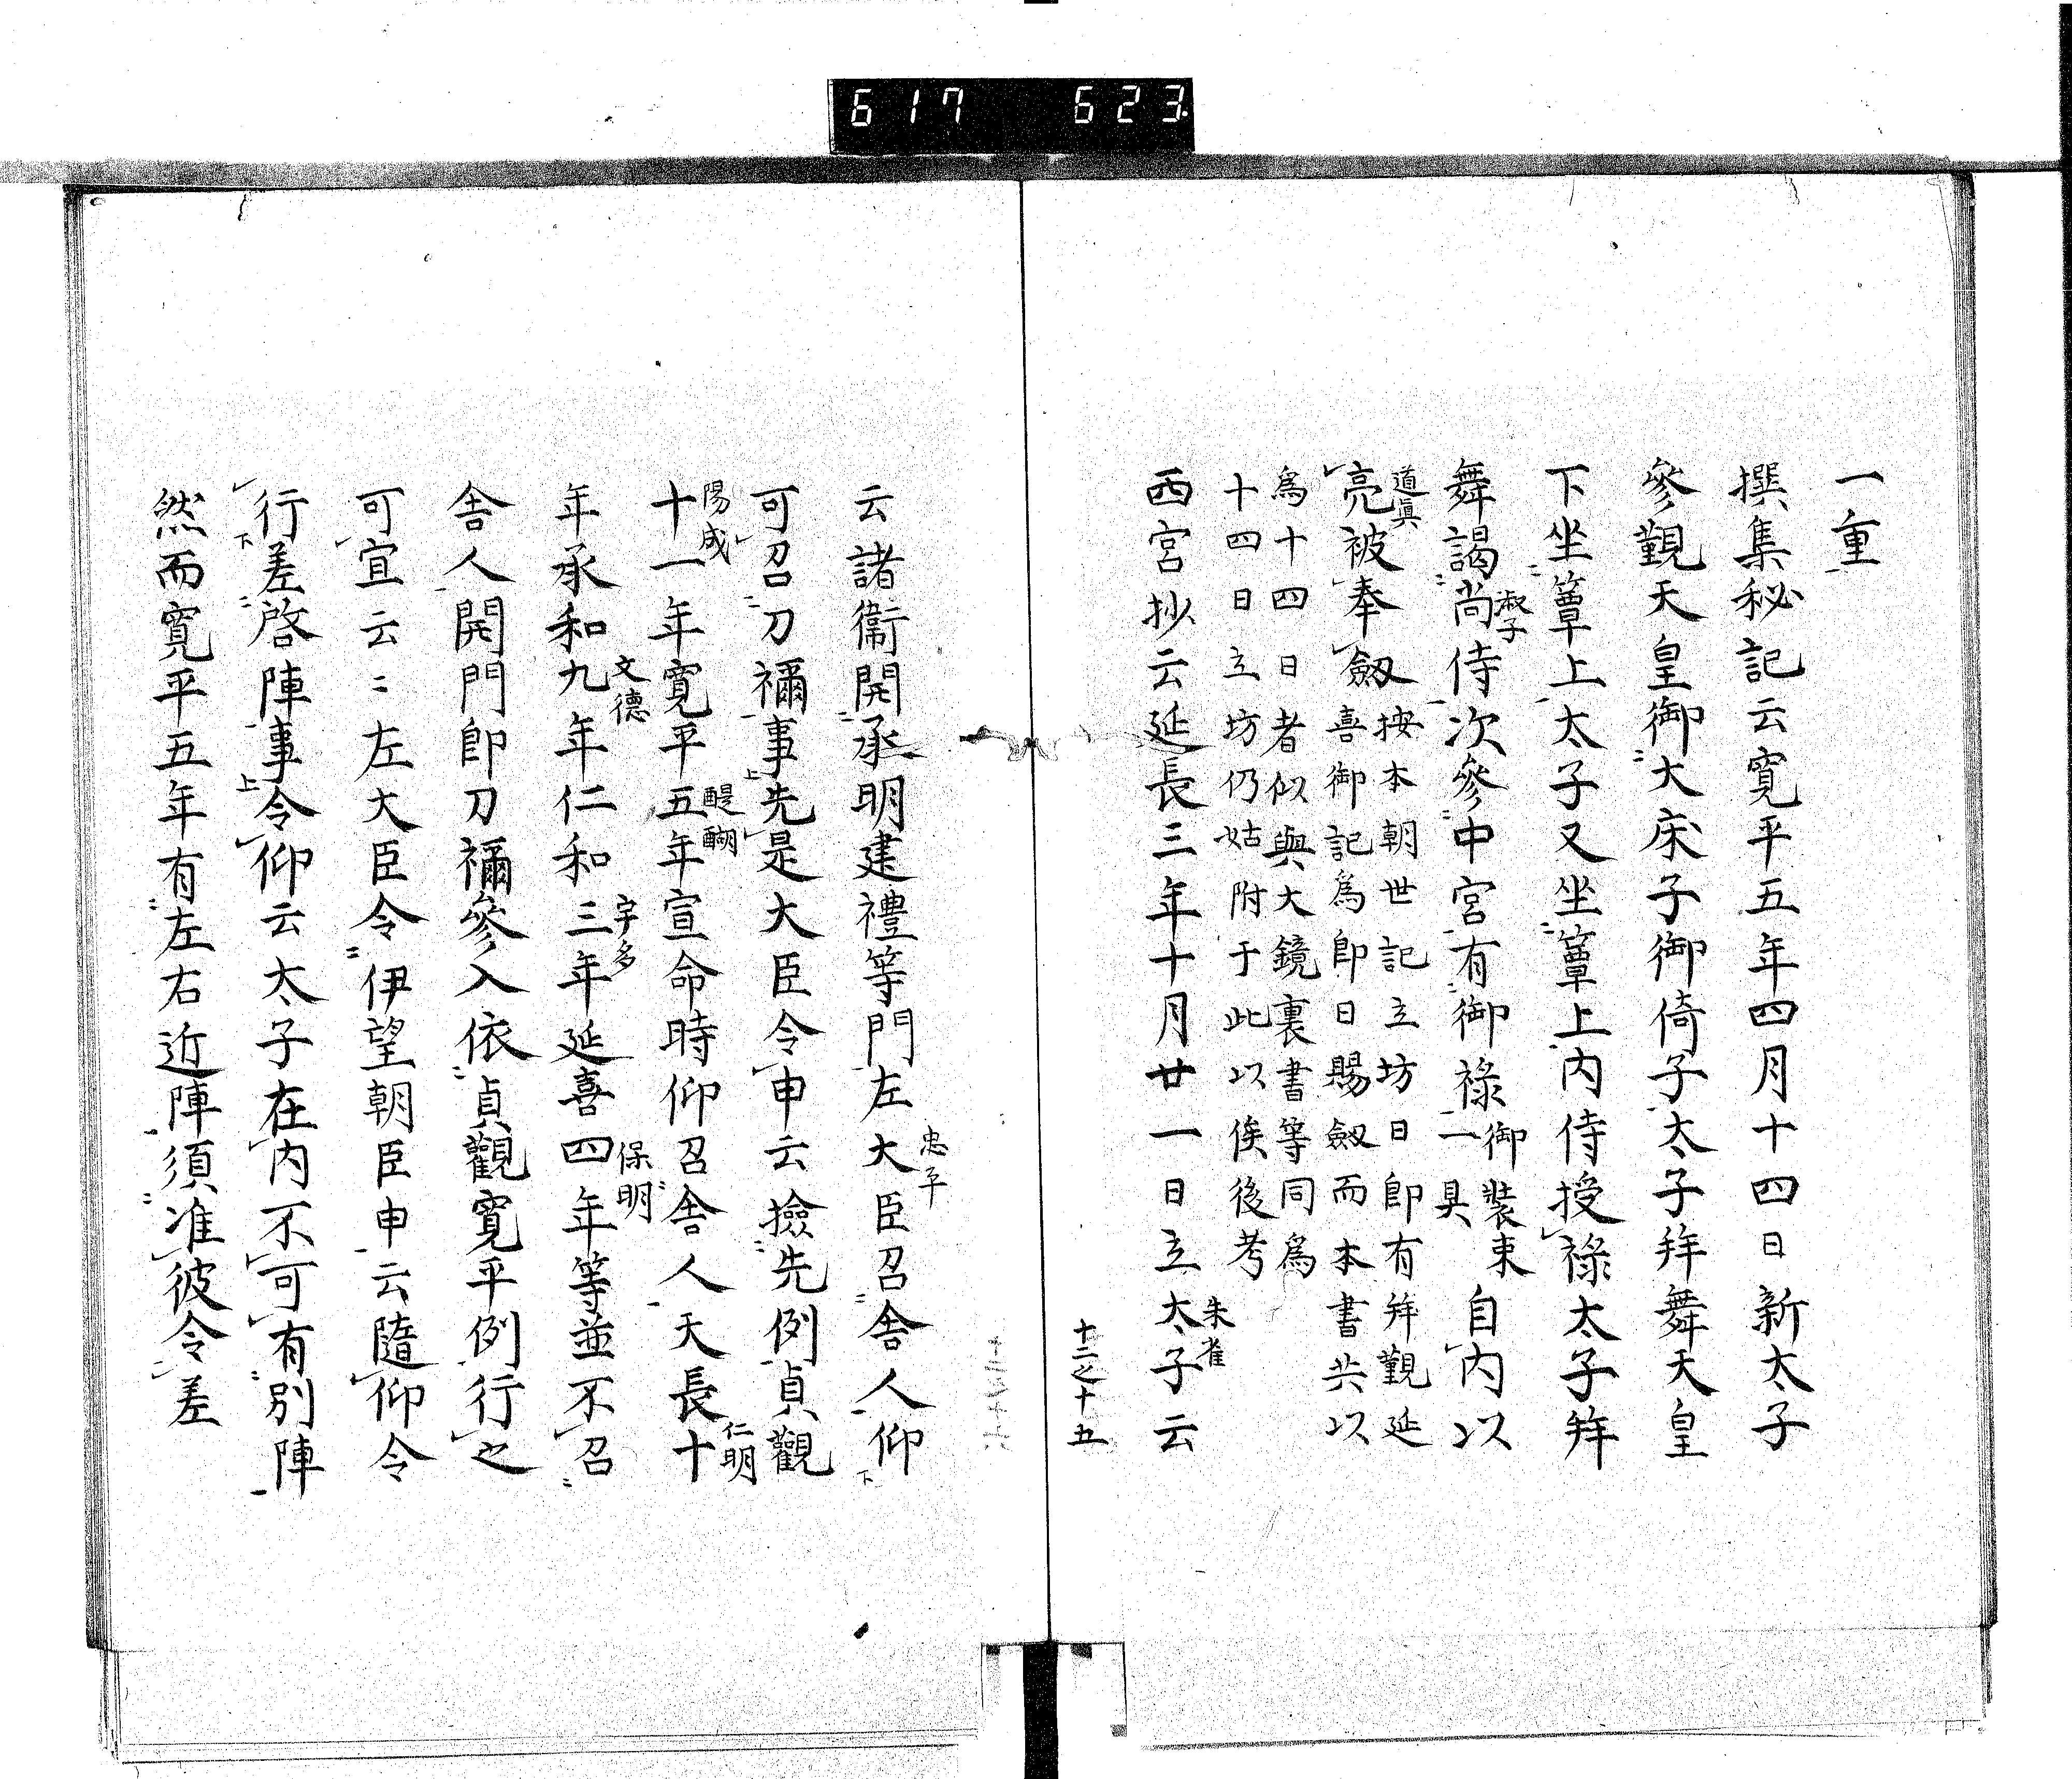 617 623
一重
撰集秘記云寛平五年四月十四日新太子
參覲天皇御大床子御倚子太子拜舞天皇
下坐簟上太子又坐簟上内侍授祿太子拜
舞謁尚侍次參中宮有御祿御裝束一具自内以
淑子
亮被奉劔按本朝世記立坊日卽有拜覲延喜御記爲卽日賜劔而本書共以
道眞
爲十四日者似與大鏡裏書等同爲
十四日立坊仍姑附于此以俟後考
西宮抄云延長三年十月廿一日立太子云
朱雀
十二之十五
云諸衞開承明建禮等門左大臣召舍人仰
忠平
可召刀禰事先是大臣令申云撿先例貞觀
十一年寛平五年宣命時仰召舍人天長十
陽成
醍醐
仁明
年承和九年仁和三年延喜四年等並不召
文德
宇多
保明
舍人開門卽刀禰參入依貞觀寛平例行之
可宣云〻左大臣令伊望朝臣申云隨仰令
行差啓陣事令仰云太子在内不可有別陣
然而寛平五年有左右近陣須准彼令差